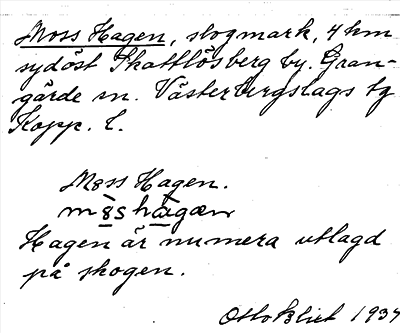 Moss Hagen, slogmark, 4 km
sydöst Skattlösberg by. Gran-
gärde sn. Västerbergslags tg
Kopp. l.
Møss Hagen.
hagæn
Hagen är numera utlagd
på skogen.
Otto Blixt 1934